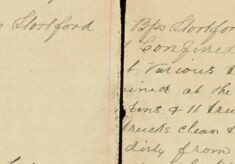 s Stortford
Bps Stortford
Confined
t Various t
ined at the
tins. & 11 Truc
trucks clean &
dirty from